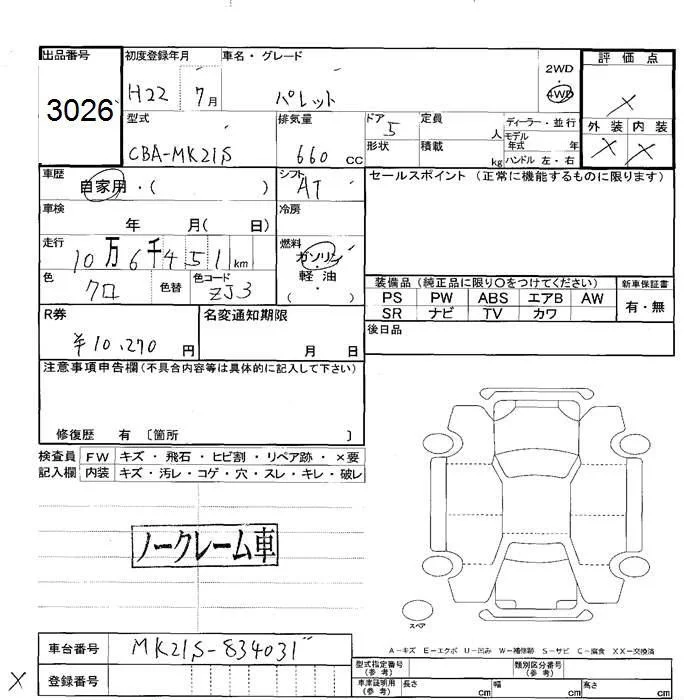 出品番号
3026
初度登録年月
H22 7月
車名・グレード
パレット
2WD
4WD
評価点
X
外装 内装
X X
型式
CBA-MK21S
排気量
660 CC
ドア
5
形状
定員
人
積載
kg
ディーラー・並行
モデル
年式 年
ハンドル 左・右
車歴
自家用・( )
シフト
AT
セールスポイント (正常に機能するものに限ります)
車検
年 月( 日)
冷房
走行
10万6千451km
燃料
ガソリン
・
軽・油
( )
色
クロ
色替
色コード
ZJ3
装備品 (純正品に限り〇をつけてください)
PS PW ABS エアB AW
SR ナビ TV カワ
新車保証書
有・無
R券
¥10,270円
名変通知期限
月 日
後日品
注意事項申告欄(不具合内容等は具体的に記入して下さい)
修復歴 有 〔箇所 〕
検査員
記入欄
FW キズ・飛石・ヒビ割・リペア跡・×要
内装 キズ・汚レ・コゲ・穴・スレ・キレ・破レ
ノークレーム車
スペア
A-キズ E-エクボ U-凹み W-補修跡 S-サビ C-腐食 XX-交換済
車台番号
MK21S-834031
X
登録番号
型式指定番号
(参考)
類別区分番号
(参考)
車庫証明用
(参考)
長さ cm 幅 cm 高さ cm